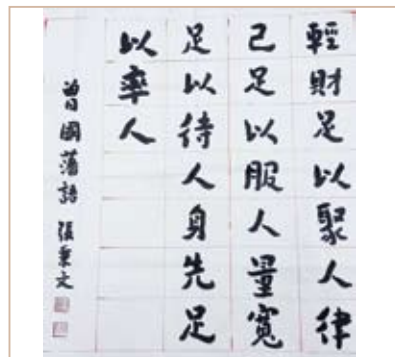 輕財足以聚人律
己足以服人量寬
足以待人身先足
以率人
曾國藩語 張秉文